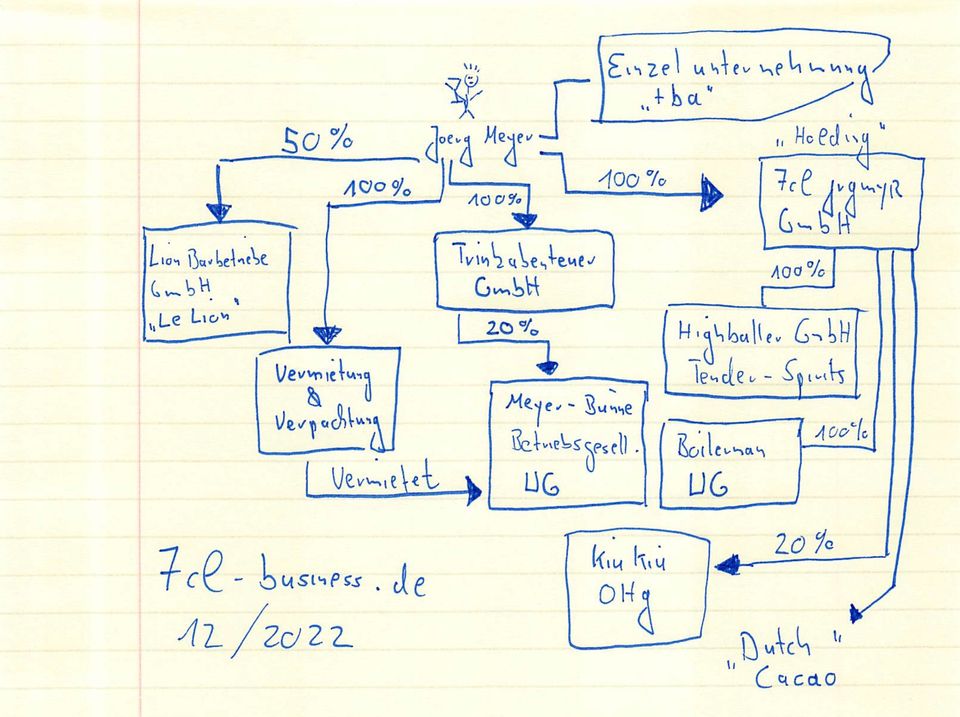 Einzelunternehmung
"tba"
Joerg Meyer
"Holding"
50%
100%
100%
100%
7cl jrgmyR
GmbH
Lion Barbetriebe
GmbH
"Le Lion"
Trinkabenteuer
GmbH
100%
20%
Highballer GmbH
Tender-Spirits
Vermietung
&
Verpachtung
Meyer-Bunne
Betriebsgesell.
UG
Boilerman
UG
100%
Vermietet
20%
Kiu Kiu
OHg
7cl-business.de
12/2022
"Dutch"
Cacao